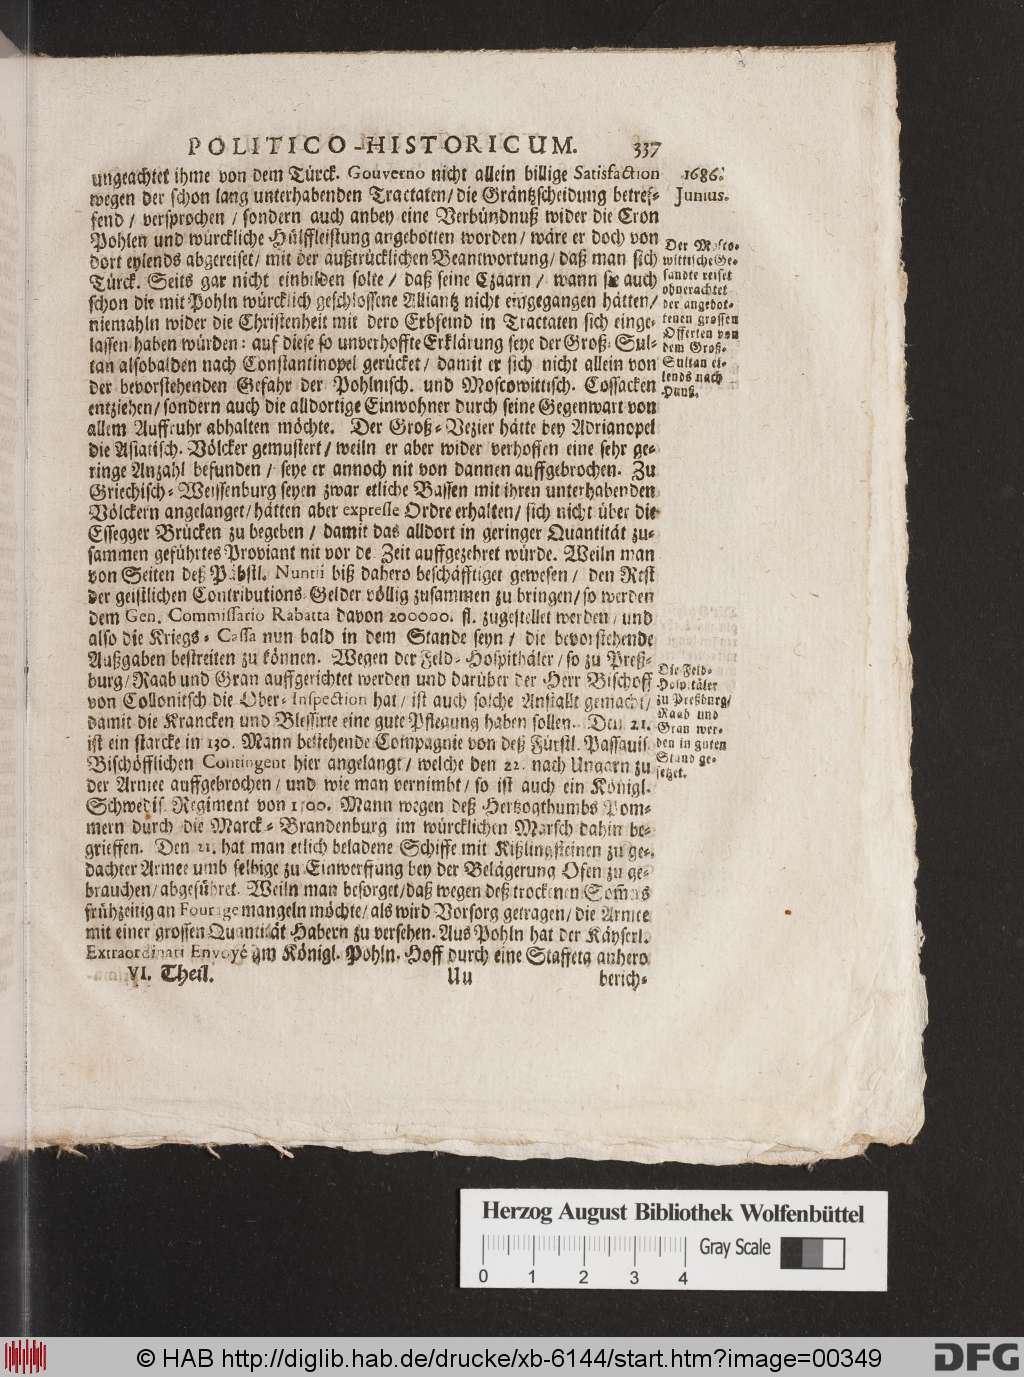 POLITICO-HISTORICUM. 337
ungeachtet ihme von dem Türck. Gouverno nicht allein billige Satisfaction
wegen der schon lang unterhabenden Tractaten/ die Gräntzscheidung betref-
fend / versprochen / sondern auch anbey eine Verbündnuß wider die Cron
Pohlen und würckliche Hülffleistung angebotten worden/ wäre er doch von
dort eylends abgereiset/ mit der außtrücklichen Beantwortung/ daß man sich
Türck. Seits gar nicht einbilden solte / daß seine Czaarn / wann sie auch
schon die mit Pohln würcklich geschlossene Alliantz nicht eingegangen hätten/
niemahln wider die Christenheit mit dero Erbfeind in Tractaten sich einge-
lassen haben würden: auf diese so unverhoffte Erklärung seye der Groß-Sul-
tan alsobalden nach Constantinopel gerücket/ damit er sich nicht allein von
der bevorstehenden Gefahr der Pohlnisch. und Moscowittisch. Cossacken
entziehen/ sondern auch die alldortige Einwohner durch seine Gegenwart von
allem Auffruhr abhalten möchte. Der Groß-Vezier hätte bey Adrianopel
die Asiatisch. Völcker gemustert/ weiln er aber wider verhoffen eine sehr ge-
ringe Anzahl befunden / seye er annoch nit von dannen auffgebrochen. Zu
Griechisch-Weissenburg seyen zwar etliche Bassen mit ihren unterhabenden
Völckern angelanget/ hätten aber expresse Ordre erhalten/ sich nicht über die
Essegger Brücken zu begeben / damit das alldort in geringer Quantität zu-
sammen geführtes Proviant nit vor der Zeit auffgezehret würde. Weiln man
von Seiten deß Päbstl. Nuntii biß dahero beschäfftiget gewesen / den Rest
der geistlichen Contributions-Gelder völlig zusammen zu bringen/ so werden
dem Gen. Commissario Rabatta davon 200000. fl. zugestellet werden/ und
also die Kriegs-Cassa nun bald in dem Stande seyn/ die bevorstehende
Außgaben bestreiten zu können. Wegen der Feld-Hospithäler/ so zu Preß-
burg/ Raab und Gran auffgerichtet werden und darüber der Herr Bischoff
von Collonitsch die Ober-Inspection hat/ ist auch solche Anstallt gemacht/
damit die Krancken und Blessirte eine gute Pflegung haben sollen. Den 21.
ist ein starcke in 130. Mann bestehende Compagnie von deß Fürstl. Passauis.
Bischöfflichen Contingent hier angelangt/ welche den 22. nach Ungarn zu
der Armee auffgebrochen/ und wie man vernimbt/ so ist auch ein Königl.
Schwedis. Regiment von 1500. Mann wegen deß Hertzogthumbs Pom-
mern durch die Marck-Brandenburg im würcklichen Marsch dahin be-
grieffen. Den 21. hat man etlich beladene Schiffe mit Kißlingsteinen zu ge-
dachter Armee umb selbige zu Einwerffung bey der Belägerung Ofen zu ge-
brauchen/ abgeführet. Weiln man besorget/ daß wegen deß trockenen Som̄ers
frühzeitig an Fourage mangeln möchte/ als wird Vorsorg getragen/ die Armee
mit einer grossen Quantität Habern zu versehen. Aus Pohln hat der Käyserl.
Extraordinari Envoyé am Königl. Pohln. Hoff durch eine Staffeta anhero
VI. Theil. Uu berich-
1686.
Junius.
Der Mosco-
wittische Ge-
sandte reiset
ohnerachtet
der angebot-
tenen grossen
Offerten von
dem Groß-
Sultan ei-
lends nach
Hauß.
Die Feld-
Hospitäler
zu Preßburg/
Raab und
Gran wer-
den in guten
Stand ge-
setzet.
Herzog August Bibliothek Wolfenbüttel
Gray Scale
0 1 2 3 4
© HAB http://diglib.hab.de/drucke/xb-6144/start.htm?image=00349
DFG